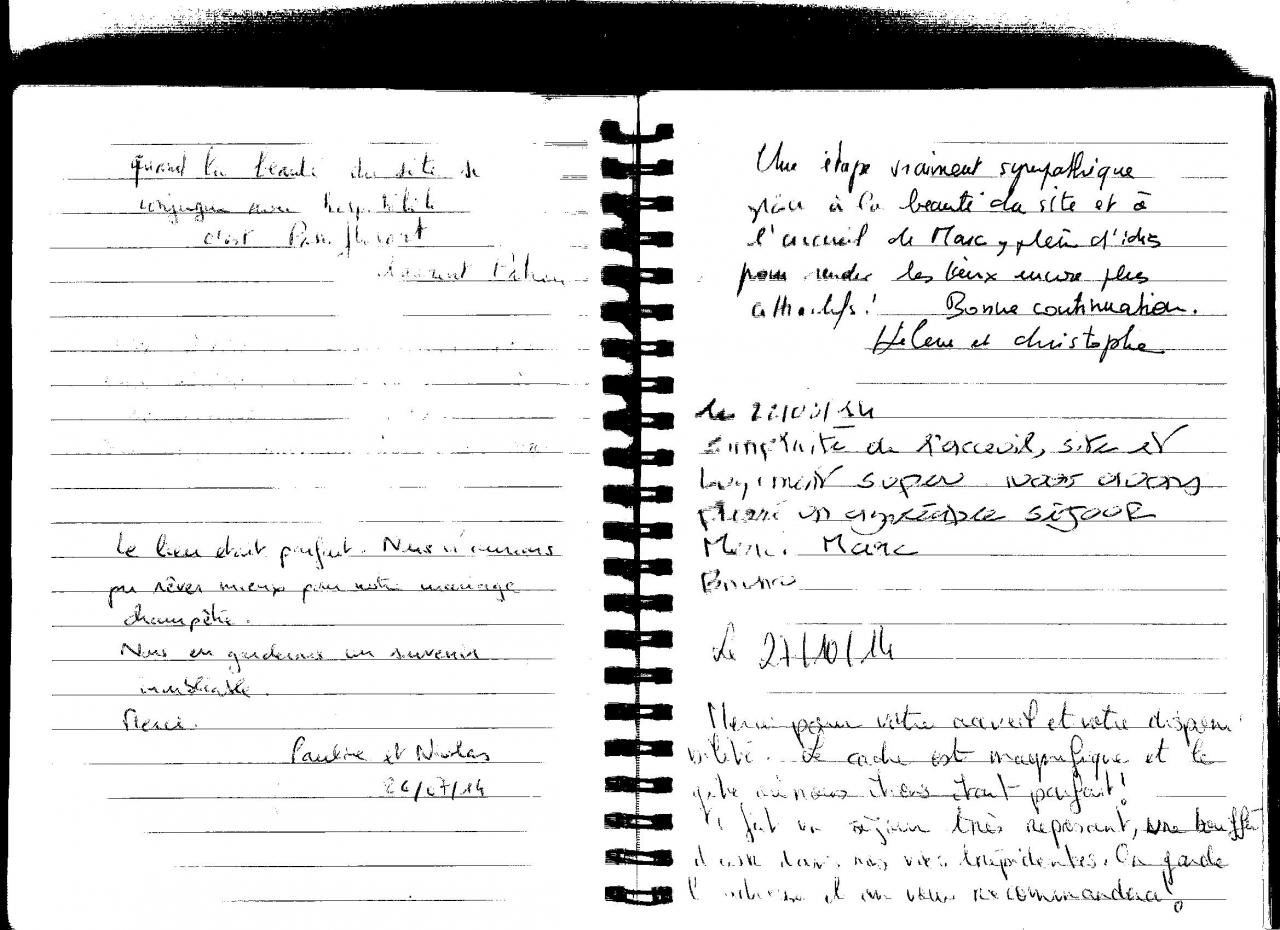 quand la beauté du site se
conjugue avec hospitalité
c'est
Laurent
Le lieu était parfait. Nous n'aurions
pu rêver mieux pour notre mariage
champêtre.
Nous en garderons un souvenir
inoubliable.
Merci.
Pauline et Nicolas
26/07/14
Une étape vraiment sympathique
grâce à la beauté du site et à
l'accueil de Marc, plein d'idées
pour rendre les lieux encore plus
attractifs! Bonne continuation.
Hélène et christophe
le 14
simplicité de l'acceuil, site et
logement super nous avons
passé un agréable séjour
Merci Marc
Bruno
Le 27/10/14
Merci pour votre accueil et votre disponi
bilité. Le cadre est magnifique et le
gîte où nous étions était parfait!
fut un séjour très reposant, une bouffée
d' dans nos vies trépidantes. On garde
l'adresse et on vous recommandera!